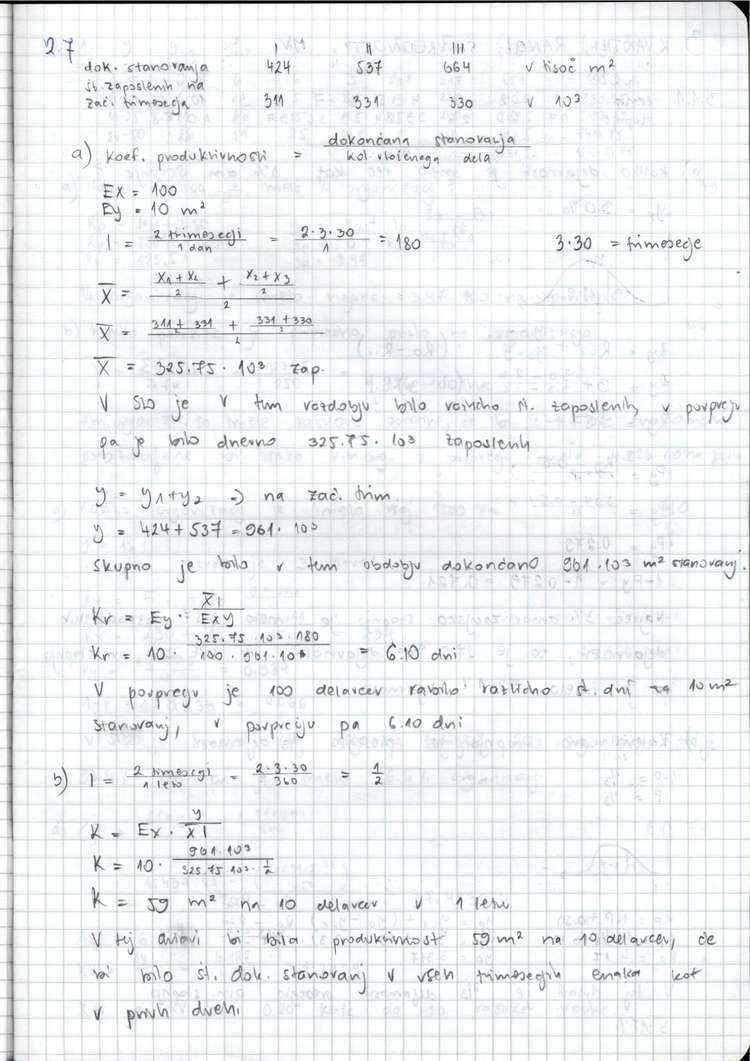 2.7
I II III
dok. stanovanja 424 537 664 v tisoč m²
št. zaposlenih na
zač. trimesečja 311 331 330 v 10³
a) koef. produktivnosti = dokončana stanovanja / kol vloženega dela
Ex = 100
Ey = 10 m²
l = 2 trimesečji / 1 dan = 2·3·30 / 1 = 180 3·30 = trimesečje
X̅ = ((x₁+x₂)/2 + (x₂+x₃)/2) / 2
X̅ = ((311+331)/2 + (331+330)/2) / 2
X̅ = 325.75 · 10³ zap.
V SLO je v tem razdobju bilo različno št. zaposlenih, v povpreju
pa je bilo dnevno 325.75. 10³ zaposlenih
y = y₁+y₂ => na zač. trim.
y = 424+537 = 961 · 10³
Skupno je bilo v tem obdobju dokončano 961 · 10³ m² stanovanj.
Kr = Ey · X̅ l / Ex y
Kr = 10 · 325.75 · 10³ · 180 / 100 · 961 · 10³ = 6.10 dni
V povprečju je 100 delavcev rabilo različno št. dni za 10 m²
stanovanj, v povprečju pa 6.10 dni
b) l = 2 trimesečji / 1 leto = 2·3·30 / 360 = 1/2
K = Ex · y / X̅ l
K = 10 · 961 · 10³ / 325.75 · 10³ · 1/2
K = 59 m² na 10 delavcev v 1 letu
V tej državi bi bila produktivnost 59 m² na 10 delavcev, če
bi bilo št. dok. stanovanj v vseh trimesečjih enaka kot
v prvih dveh.